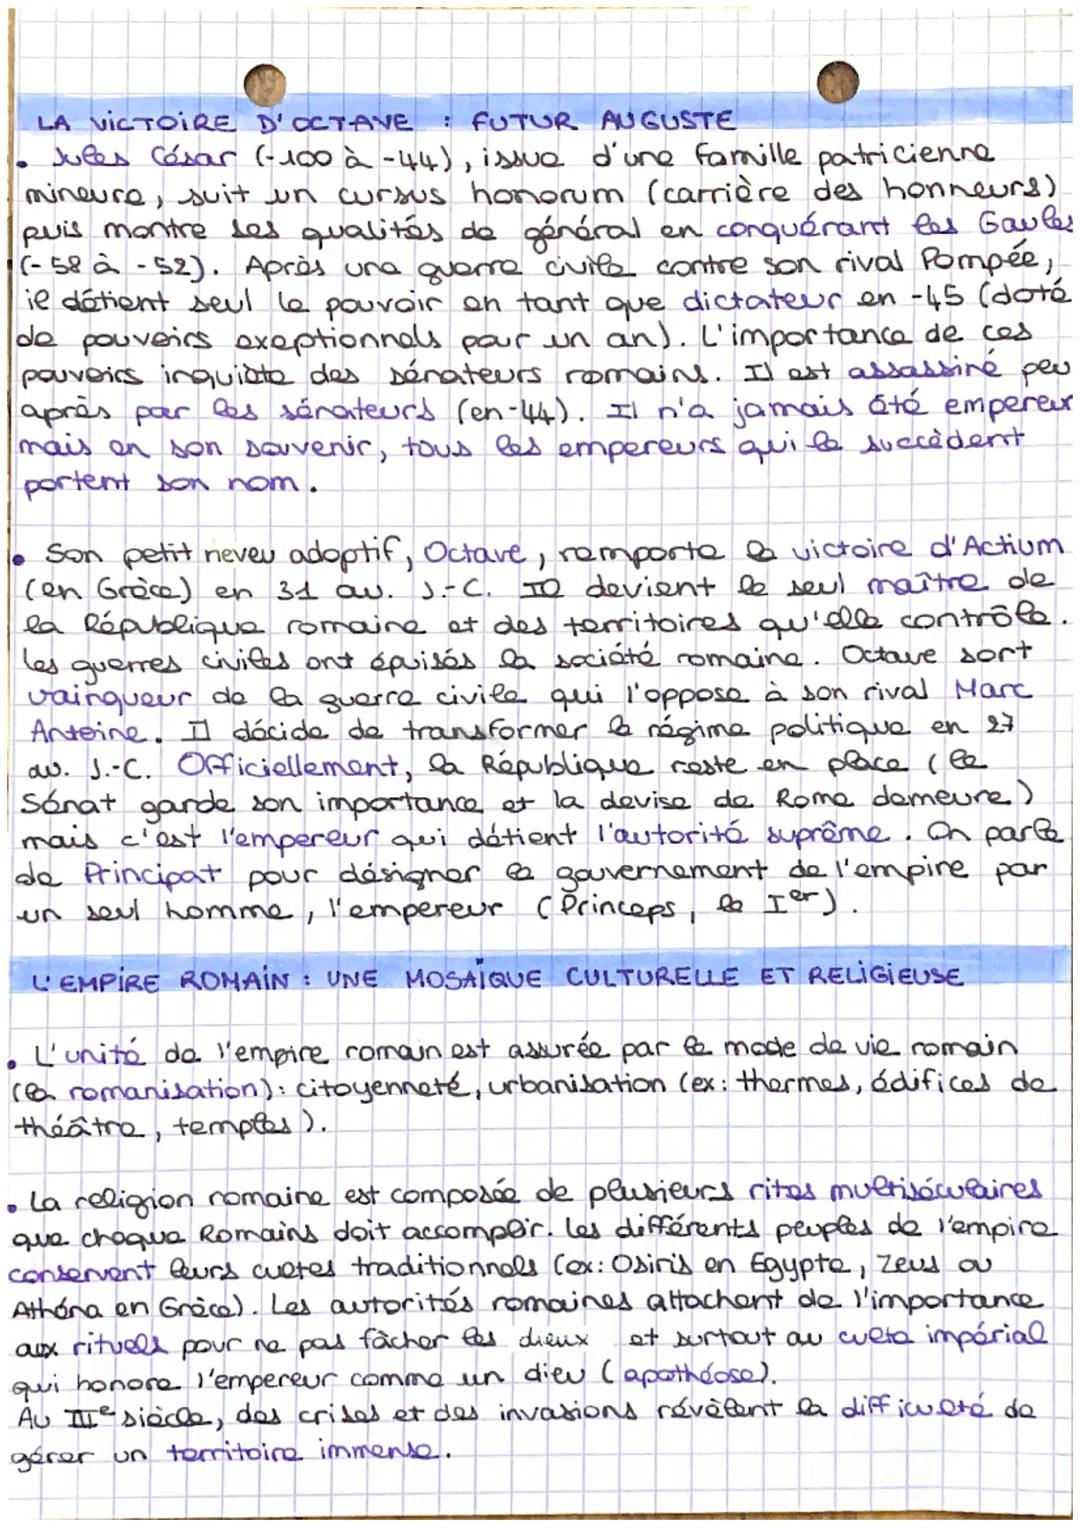 LA VICTOIRE D'OCTAVE : FUTUR AUGUSTE
• Jules César (-100 à -44), issue d'une famille patricienne
mineure, suit un cursus honorum (carrière des honneurs)
puis montre ses qualités de général en conquérant les Gaules
(-58 à -52). Après une guerre civile contre son rival Pompée,
il détient seul le pouvoir en tant que dictateur en -45 (doté
de pouvoirs exeptionnels pour un an). L'importance de ces
pouvoirs inquiète des sénateurs romains. Il est assassiné peu
après par les sénateurs (en -44). Il n'a jamais été empereur
mais en son souvenir, tous les empereurs qui le succèdent
portent son nom.
• Son petit neveu adoptif, Octave, remporte la victoire d'Actium
(en Grèce) en 31 av. J.-C. Il devient le seul maître de
la République romaine et des territoires qu'elle contrôle.
Les guerres civiles ont épuisés la société romaine. Octave sort
vainqueur de la guerre civile qui l'oppose à son rival Marc
Antoine. Il décide de transformer le régime politique en 27
av. J.-C. Officiellement, la République reste en place (le
Sénat garde son importance et la devise de Rome demeure)
mais c'est l'empereur qui détient l'autorité suprême. On parle
de Principat pour désigner le gouvernement de l'empire par
un seul homme, l'empereur (Princeps, le Ier).
L'EMPIRE ROMAIN : UNE MOSAÏQUE CULTURELLE ET RELIGIEUSE
• L'unité de l'empire romain est assurée par le mode de vie romain
(la romanisation): citoyenneté, urbanisation (ex: thermes, édifices de
théâtre, temples).
• La religion romaine est composée de plusieurs rites multiséculaires
que chaque Romains doit accomplir. Les différents peuples de l'empire
conservent leurs cultes traditionnels (ex: Osiris en Egypte, Zeus ou
Athéna en Grèce). Les autorités romaines attachent de l'importance
aux rituels pour ne pas fâcher les dieux et surtout au culte impérial
qui honore l'empereur comme un dieu (apothéose).
Au IIIe siècle, des crises et des invasions révèlent la difficulté de
gérer un territoire immense.